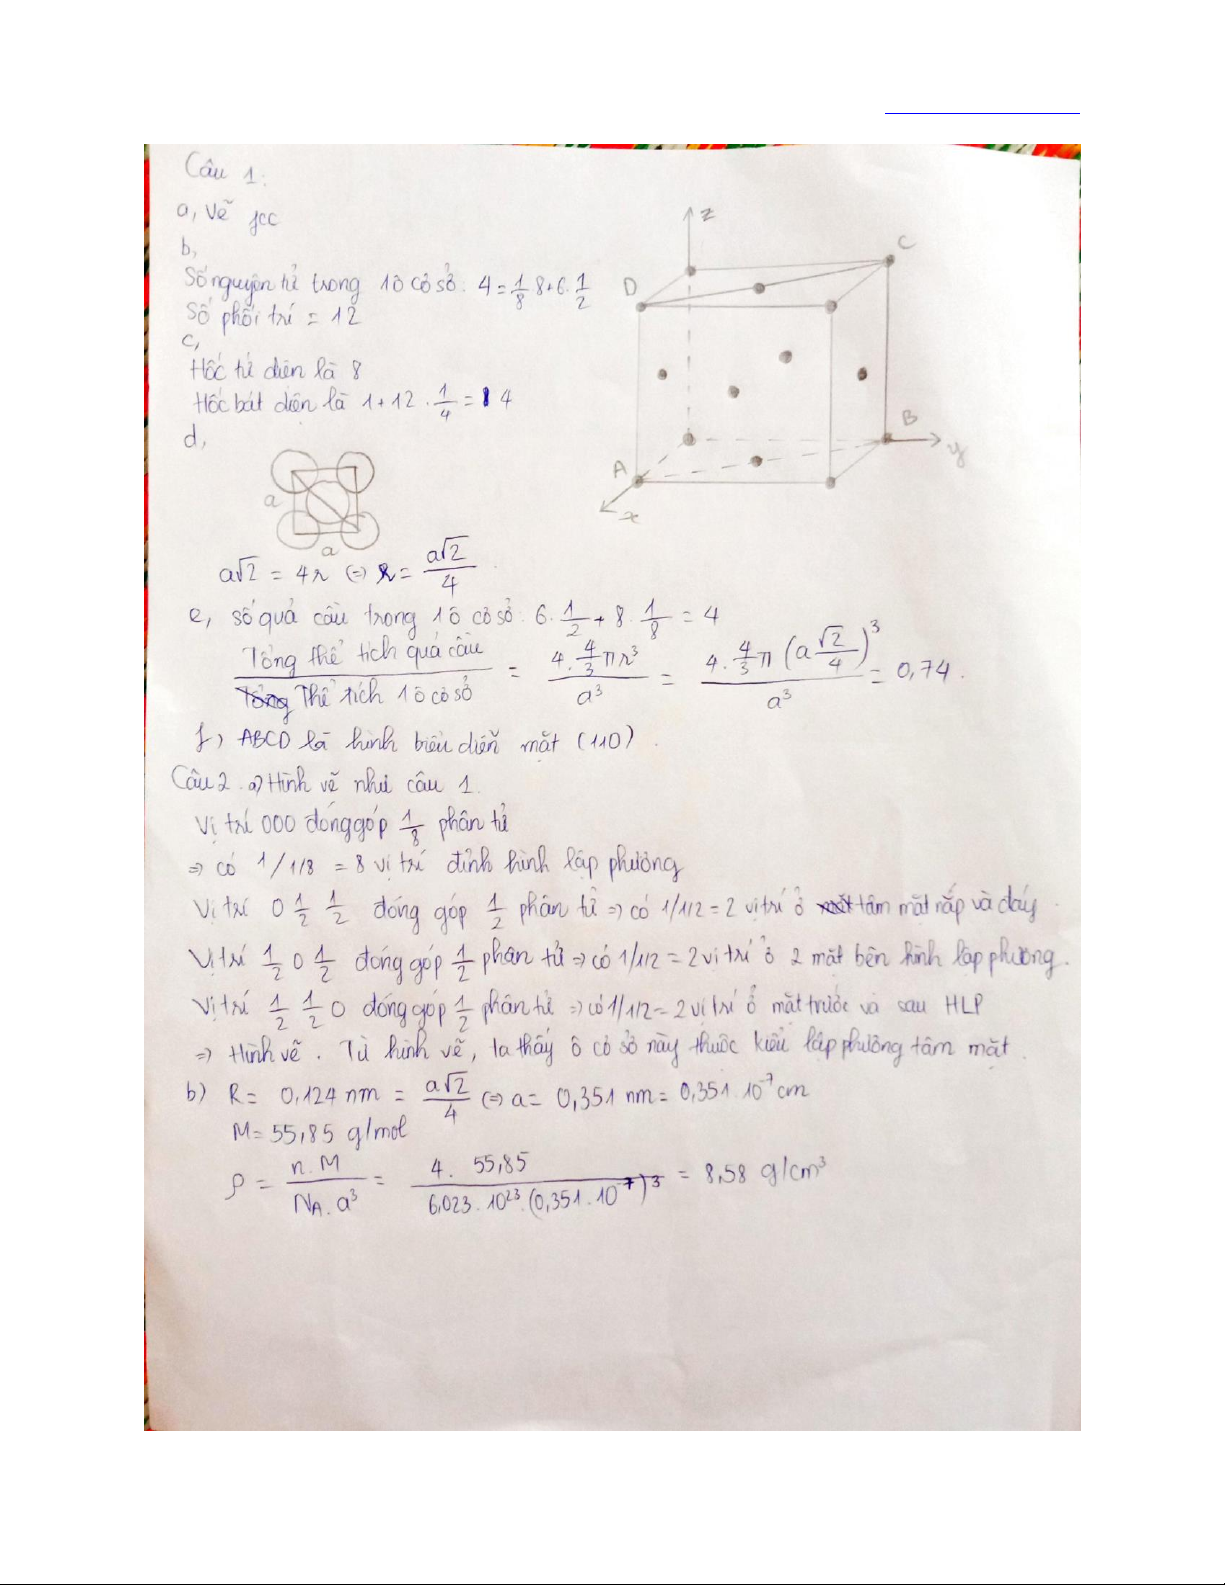 Câu 1:
a, Vẽ fcc
b,
Số nguyên tử trong 1 ô cơ sở: 4 = 1/8 · 8 + 6 · 1/2
Số phối trí = 12
c,
Hốc tứ diện là 8
Hốc bát diện là 1 + 12 · 1/4 = 4
d,
z
C
D
B
y
A
x
a
a
a√2 = 4r (=) R = a√2/4
e, số quả cầu trong 1 ô cơ sở: 6 · 1/2 + 8 · 1/8 = 4
Tổng thể tích quả cầu / Thể tích 1 ô cơ sở = 4 · 4/3 πr³ / a³ = 4 · 4/3 π (a √2/4)³ / a³ = 0,74.
f) ABCD là hình biểu diễn mặt (110).
Câu 2. a) Hình vẽ như câu 1.
Vị trí 000 đóng góp 1/8 phân tử
=> có 1/1/8 = 8 vị trí đỉnh hình lập phương
Vị trí 0 1/2 1/2 đóng góp 1/2 phân tử => có 1/1/2 = 2 vị trí ở tâm mặt nắp và đáy.
Vị trí 1/2 0 1/2 đóng góp 1/2 phân tử => có 1/1/2 = 2 vị trí ở 2 mặt bên hình lập phương.
Vị trí 1/2 1/2 0 đóng góp 1/2 phân tử => có 1/1/2 = 2 vị trí ở mặt trước và sau HLP
=> Hình vẽ. Từ hình vẽ, ta thấy ô cơ sở này thuộc kiểu lập phương tâm mặt.
b) R = 0,124 nm = a√2/4 (=) a = 0,351 nm = 0,351.10⁻⁷ cm
M = 55,85 g/mol
ρ = n.M / N_A.a³ = 4. 55,85 / 6,023.10²³.(0,351.10⁻⁷)³ = 8,58 g/cm³